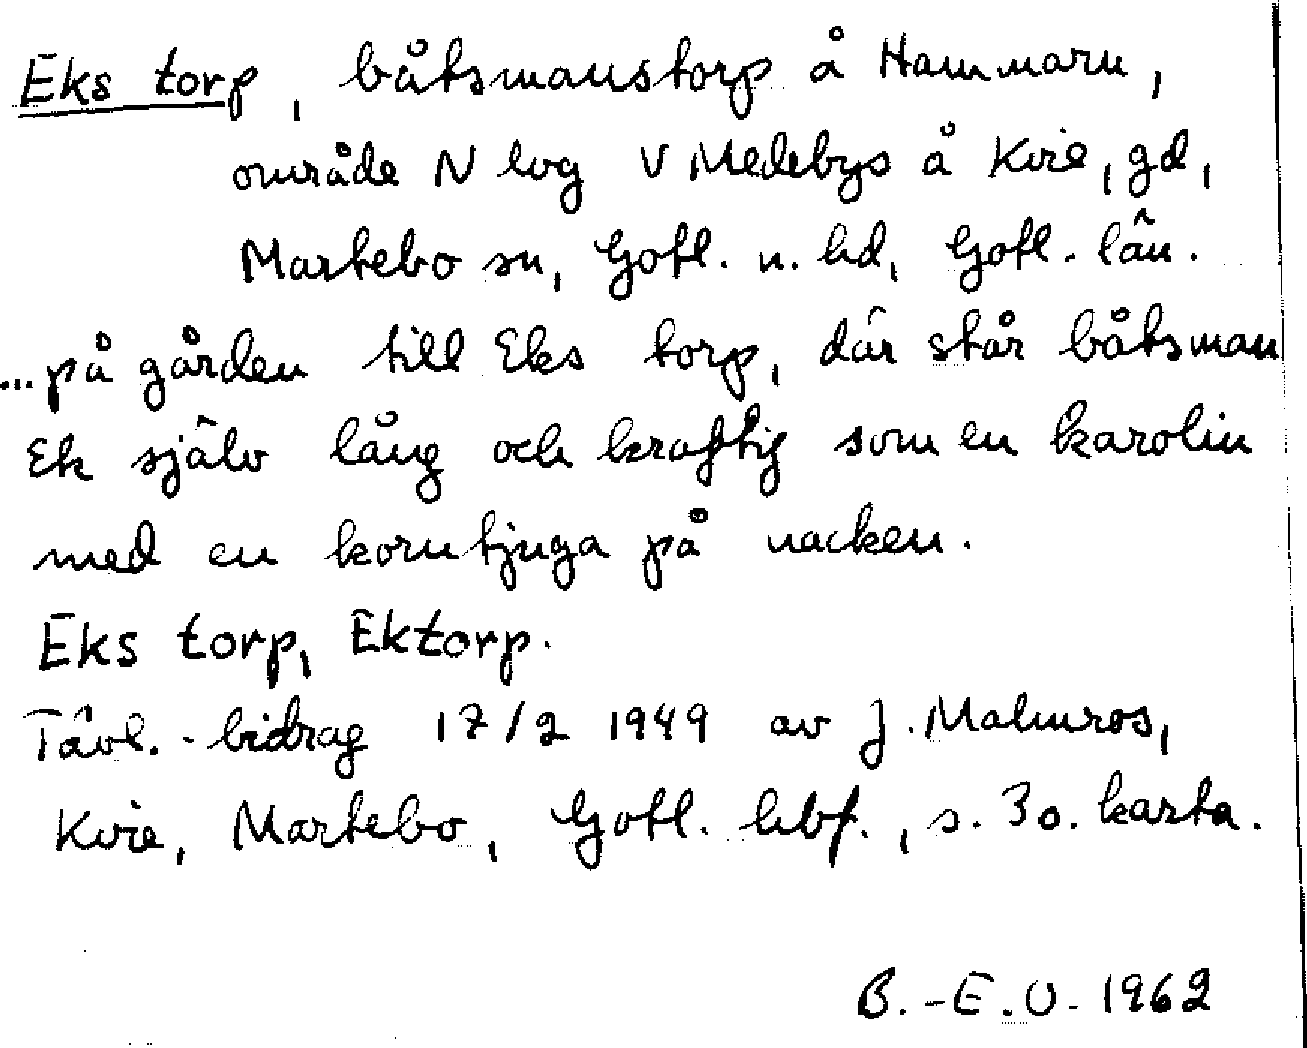 Eks torp, båtsmanstorp å Hammarn,
område N log V Medebys å Kvie, gd,
Martebo sn, Gotl. n. hd, Gotl. län.
...på gården till Eks torp, där står båtsman
Ek själv lång och kraftig som en karolin
med en korntjuga på nacken.
Eks torp, Ektorp.
Tävl.-bidrag 17/2 1949 av J. Malmros,
Kvie, Martebo, Gotl. hbf., s. 30. karta.
B.-E.O. 1962